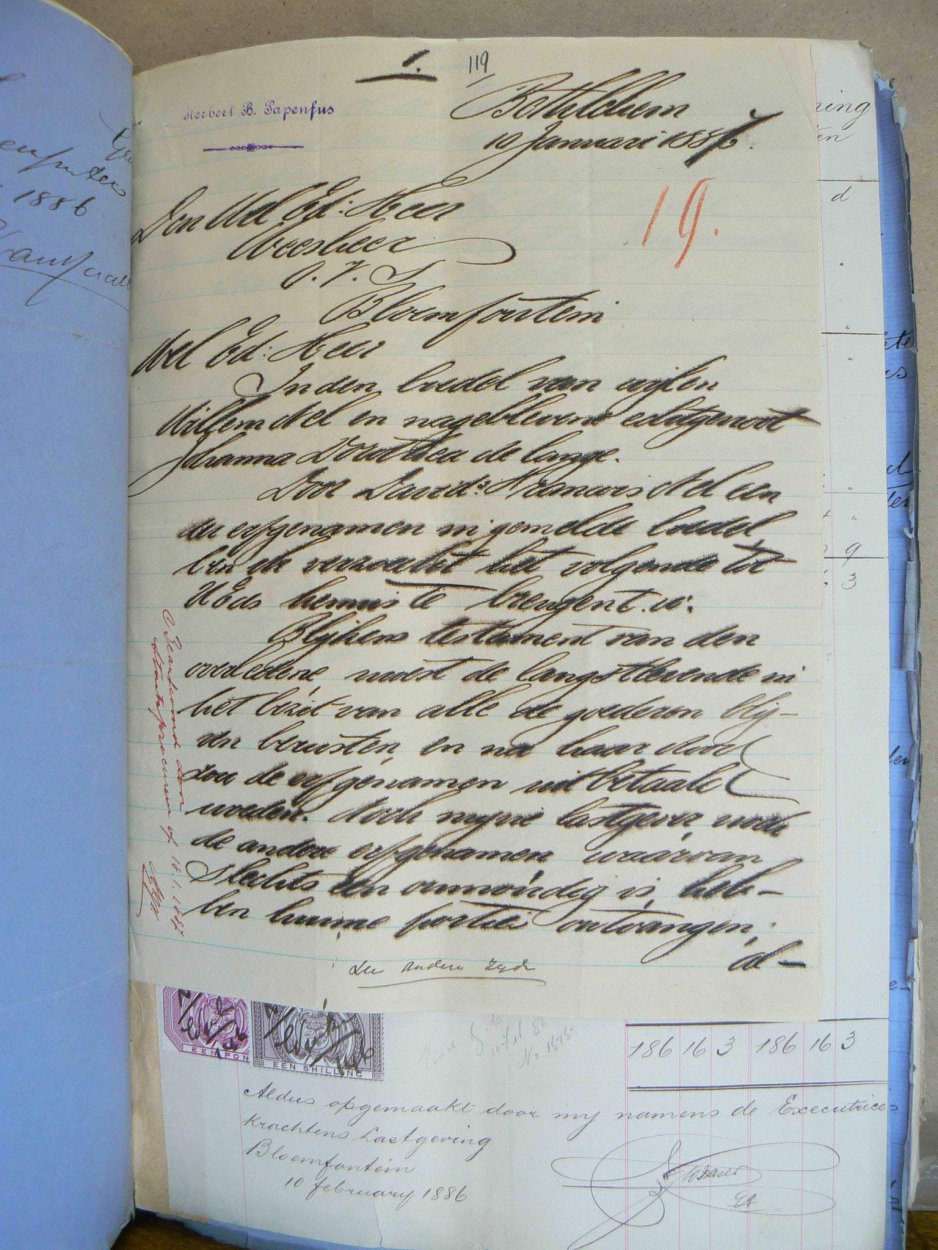 1.
119
Herbert B. Papenfus
Bethlehem
10 Januari 1887.
19.
Den Wel Ed: Heer
Weesheer
O. V. S
Bloemfontein
Wel Ed: Heer
In den boedel van wijlen
Willem Nel en nageblevene echtgenoot
Johanna Dorothea de Lange.
Door David: Hermanis Nel een
der erfgenamen in gemelde boedel
ben ik verzocht het volgende tot
UEds kennis te brengen t. w:
Blijkens testament van den
overledene moest de langstlevende in
het bezit van alle de goederen blij-
ven berusten, en na haar dood
zou de erfgenamen uitbetaald
worden. doch myne lastgever noch
de andere erfgenamen waarvan
Slechts een onmondig is, heb-
ben hunne portie ontvangen;
al-
Zie andere zyde
Beantwoord door
Staatsprocureur
18.1.1887
EEN PON
EEN SHILLING
No 1545
186 16 3 186 16 3
Aldus opgemaakt door my namens de Executrices
Krachtens Lastgeving
Bloemfontein
10 february 1886
1886